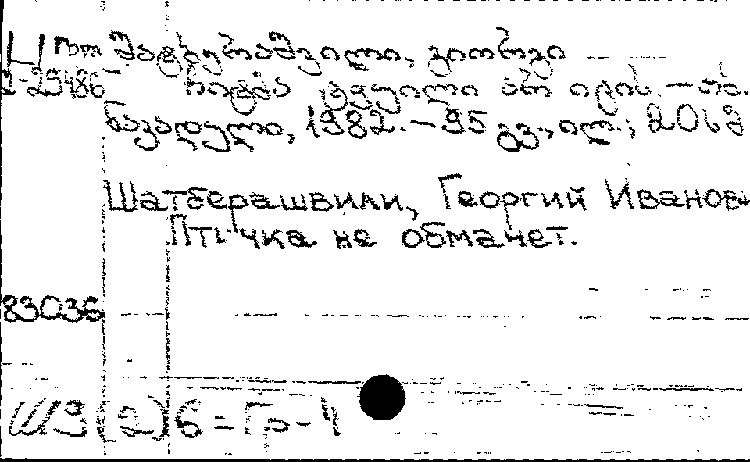 შატბერაშვილი, გიორგი
2-25486
ჩიტმა ტყუილი არ იცის. – თბ.
ნაკადული, 1982. – 95 გვ., ილ.; 20სმ
Шатберашвили, Георгий Иванов
Птичка не обманет.
83036
Ш3(2)6=Гр-4